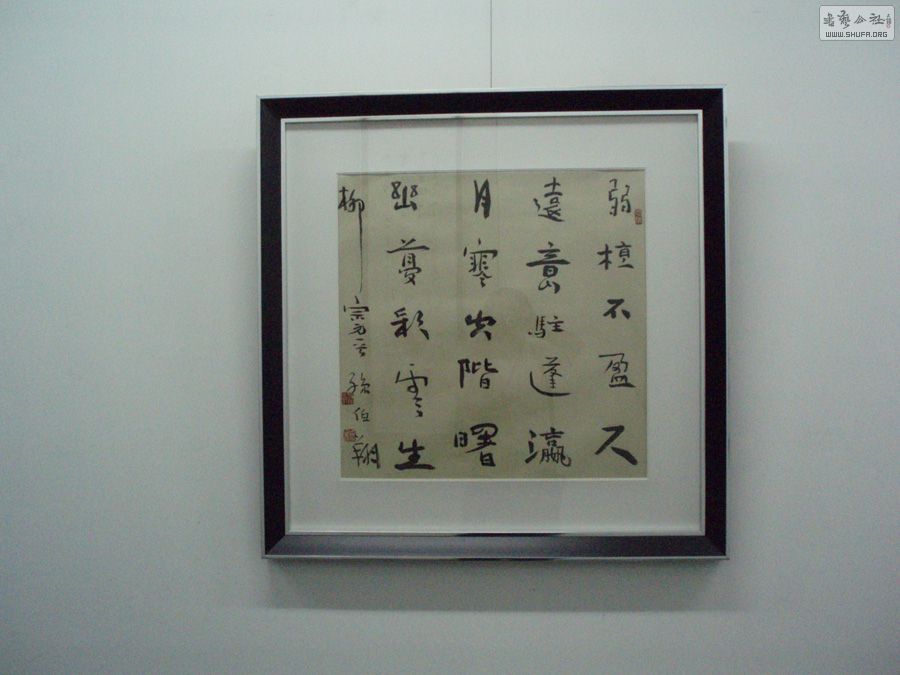 弱植不盈尺
遠意駐蓬瀛
月寒空階曙
幽夢彩雲生
柳宗元一首 孫伯翔
書藝公社
WWW.SHUFA.ORG